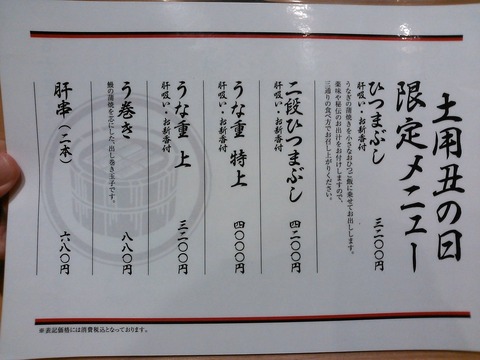 土用丑の日
限定メニュー
ひつまぶし
肝吸い・お新香付
三二〇〇円
うなぎの蒲焼きを小さなおひつご飯に乗せてお出しします。
薬味や秘伝のお出汁をお付けしますので、
三通りの食べ方でお召し上がりください。
二段ひつまぶし
肝吸い・お新香付
四二〇〇円
うな重 特上
肝吸い・お新香付
四〇〇〇円
うな重 上
肝吸い・お新香付
三二〇〇円
う巻き
八八〇円
鰻の蒲焼を芯にした、出し巻き玉子です。
肝串（二本）
六八〇円
※表記価格には消費税込となっております。